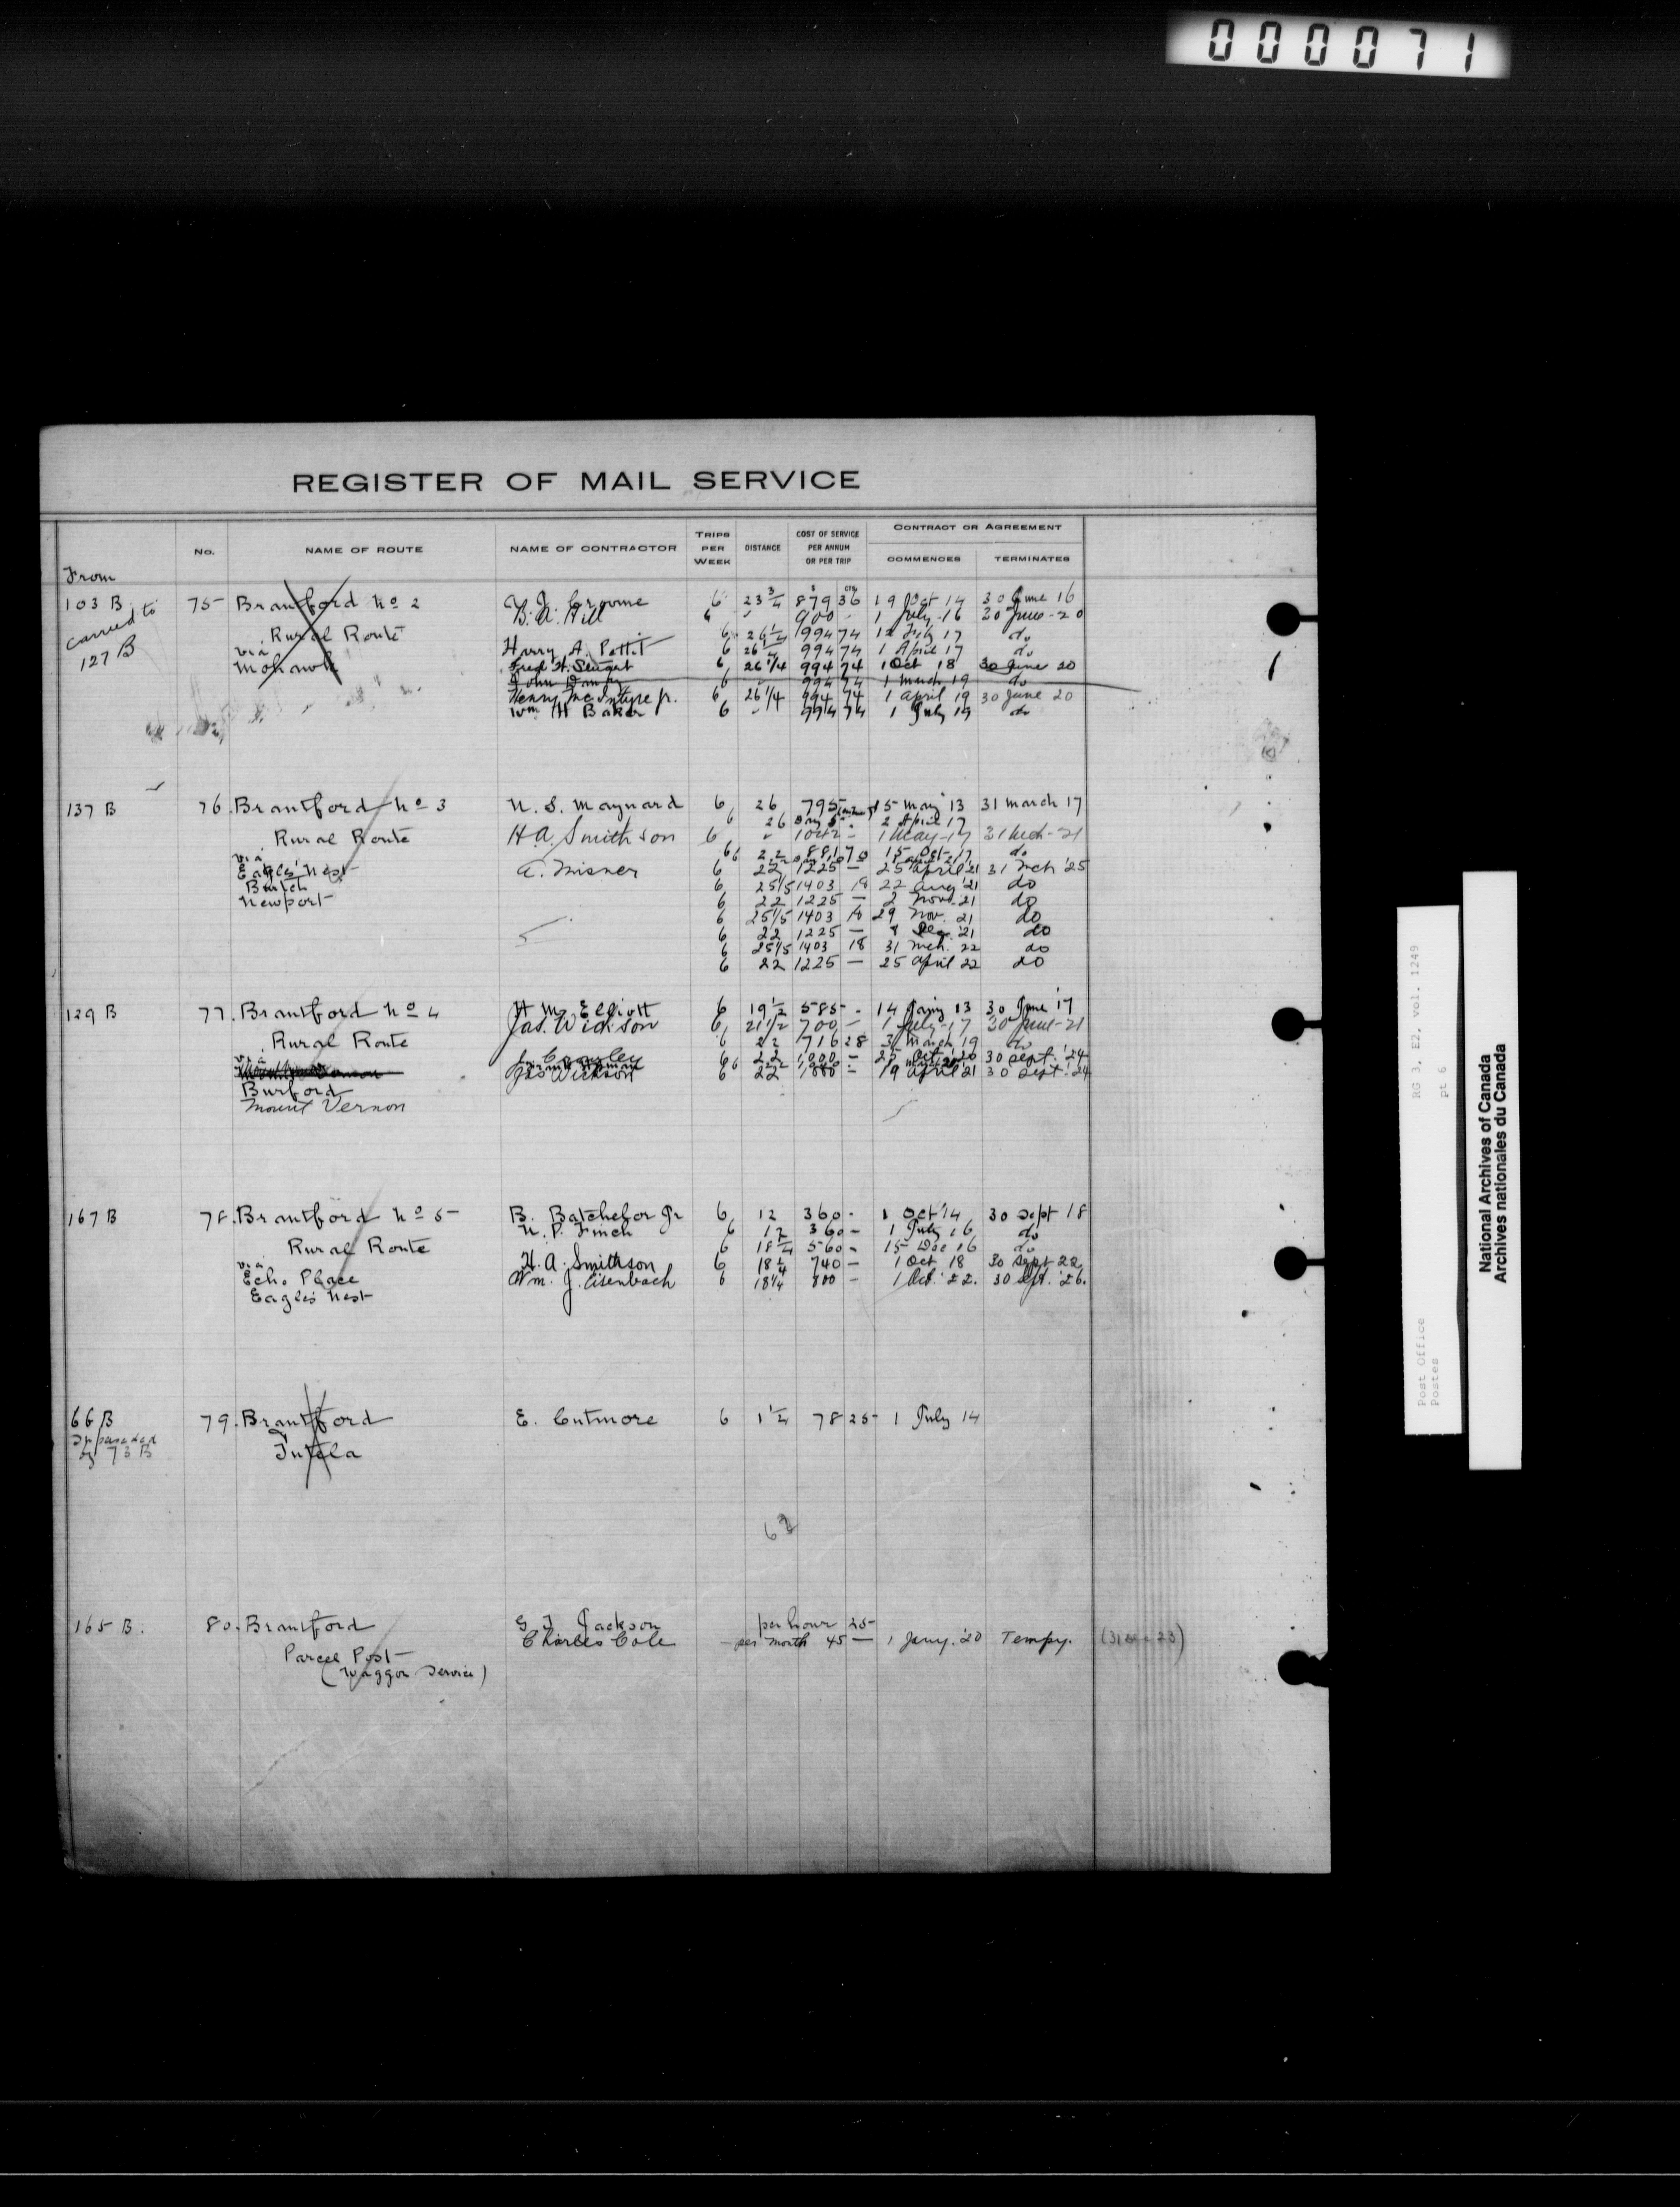 000071
REGISTER OF MAIL SERVICE
From
No.
NAME OF ROUTE
NAME OF CONTRACTOR
TRIPS PER WEEK
DISTANCE
COST OF SERVICE PER ANNUM OR PER TRIP
CONTRACT OR AGREEMENT
COMMENCES
TERMINATES
$ CTS.
103 B 75 Brantford No 2 6 23 3/4 879 36 19 Oct 14 30 June 16
carried to 127 B
B. A. Hill 6 " 900 - 1 July-16 30 June-20
Rural Route 6 26 1/4 994 74 12 17 do
via Harry A. Pettit 6 26 1/4 994 74 1 April 17 do
Mohawk Fred H. 6 26 1/4 994 74 1 Oct 18 30 June 20
John 6 " 994 74 1 March 19 do
Henry McIntyre jr. 6 26 1/4 994 74 1 April 19 30 June 20
Wm H Baker 6 " 994 74 1 July 19 do
137 B 76. Brantford No 3 N. S. Maynard 6 26 795 15 May 13 31 March 17
6 26 2 April 17
Rural Route H. A. Smithson 6 " 1 May-17 31 Mch-21
6 22 881 70 15 Oct 17 do
via
Eagles Nest A. Misner 6 22 1225 — 25 April 21 31 Mch '25
Burtch 6 25 1/5 1403 18 22 Aug '21 do
Newport 6 22 1225 — 2 Nov. 21 do
6 25 1/5 1403 18 29 Nov. 21 do
6 22 1225 — Dec. '21 do
6 25 1/5 1403 18 31 Mch. 22 do
6 22 1225 — 25 April 22 do
129 B 77. Brantford No 4 H M Elliott 6 19 1/2 585 - 14 Jany 13 30 June '17
Jas. Wickson 6 21 1/2 700 — 1 July-17 30 June-21
Rural Route 6 22 716 28 31 March 19 do
via 6 22 1,000 — Oct '20 30 Sept. '24
Jas Wickson 6 22 — 19 April '21 30 Sept. '24
Burford
Mount Vernon
167 B 78. Brantford No 5 B. Batchelor Jr 6 12 360 - 1 Oct '14 30 Sept 18
N. P. Finch 6 12 360 — 1 July 16 do
Rural Route 6 18 1/4 560 - 15 Dec 16 do
via H. A. Smithson 6 18 1/4 740 — 1 Oct 18 30 Sept 22
Echo Place Wm. J. Eisenbach 6 18 1/4 800 — 1 Oct. '22. 30 Sept. '26.
Eagles Nest
66 B 79. Brantford E. Cutmore 6 1 1/4 78 25 1 July 14
Superseded by 73 B
Tutela
165 B. 80. Brantford G J Jackson per hour 25
Charles Cole per month 45 — 1 Jany. '20 Tempy.
Parcel Post
(Waggon Service)
RG 3, E2, vol. 1249
pt 6
Post Office
Postes
National Archives of Canada
Archives nationales du Canada